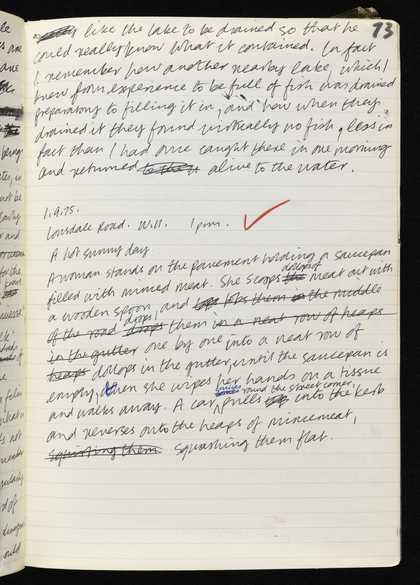 like the lake to be drained so that he
73
could really know what it contained. In fact
I remember how another nearby lake, which I
knew from experience to be full of fish was drained
preparatory to filling it in, and how when they
drained it they found virtually no fish, less in
fact than I had once caught there in one morning
and returned to the alive to the water.
1.9.75.
Lonsdale Road. W.11. 1pm.
A hot sunny day
A woman stands on the pavement holding a saucepan
filled with minced meat. She scoops the dollops of meat out with
a wooden spoon, and lobs them in the middle
of the road drops drops them in a neat row of heaps
in the gutter one by one into a neat row of
heaps dollops in the gutter, until the saucepan is
empty, then she wipes her hands on a tissue
and walks away. A car, round the street corner, pulls into the kerb
and reverses onto the heaps of mincemeat,
squirting them squashing them flat.